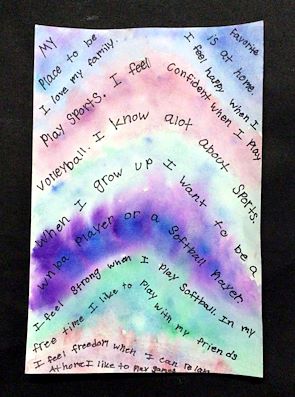 My Favorite
place to be is at home.
I love my family. I feel happy when I
play sports. I feel confident when I play
volleyball. I know alot about sports.
when I grow up I want to be a
wnba player or a softball player
I feel strong when I play softball. In my
free time I like to play with my friends
I feel freedom when I can relax
At home I like to play games